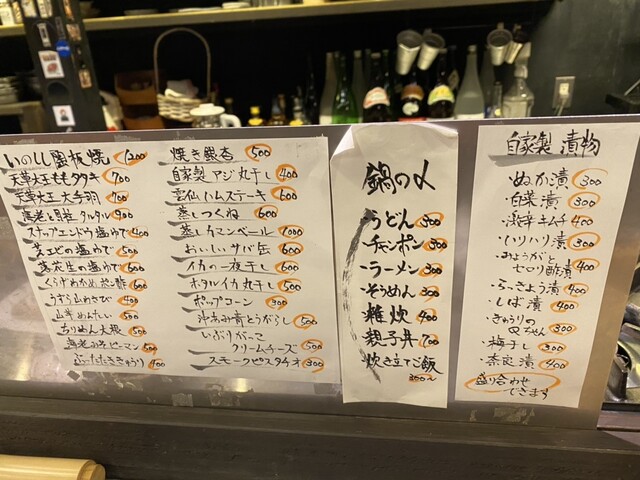 いのしし陶板焼 1200
天草大王ももタタキ 700
天草大王 大手羽 700
海老と タルタル 900
スナップエンドウ塩ゆで 500
芝エビの塩ゆで 500
落花生の塩ゆで 600
くらげわかめポン酢 600
うずら山わさび 400
山芋めんたい 500
ちりめん大根 500
海老みそピーマン 500
ぶったたききゅうり 400
焼き銀杏 500
自家製 アジ丸干し 400
雲仙ハムステーキ 600
蒸しつくね 600
蒸しカマンベール 1000
おいしいサバ缶 600
イカの一夜干し 600
ホタルイカ丸干し 500
ポップコーン 300
青とうがらし 500
いぶりがっこ
クリームチーズ 500
スモークピスタチオ 300
鍋の〆
うどん 300
・チャンポン 300
・ラーメン 300
・そうめん 300
・雑炊 400
・親子丼 700
・炊き立てご飯
300〜
自家製 漬物
・ぬか漬 300
・白菜漬 300
・激辛キムチ 400
・ハリハリ漬 300
・みょうがと
セロリ酢漬 400
・らっきょう漬 400
・しば漬 400
・きゅうりの
Qちゃん 300
・梅干し 300
・奈良漬 400
盛り合わせ
できます